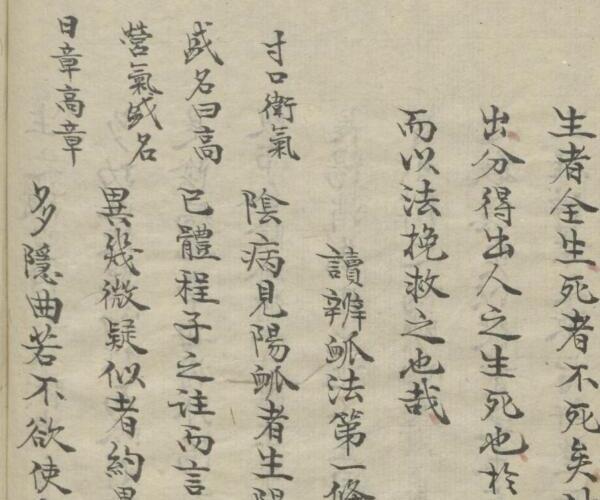 生者全生死者不死矣
出分得出人之生死也於
而以法挽救之也哉
讀辨脈法第一條
陰病見陽脈者生陽
已體程子之註而言
異幾微疑似者約畧
多隱曲若不欲使
寸口衛氣
盛名曰高
營氣盛名
曰章高章